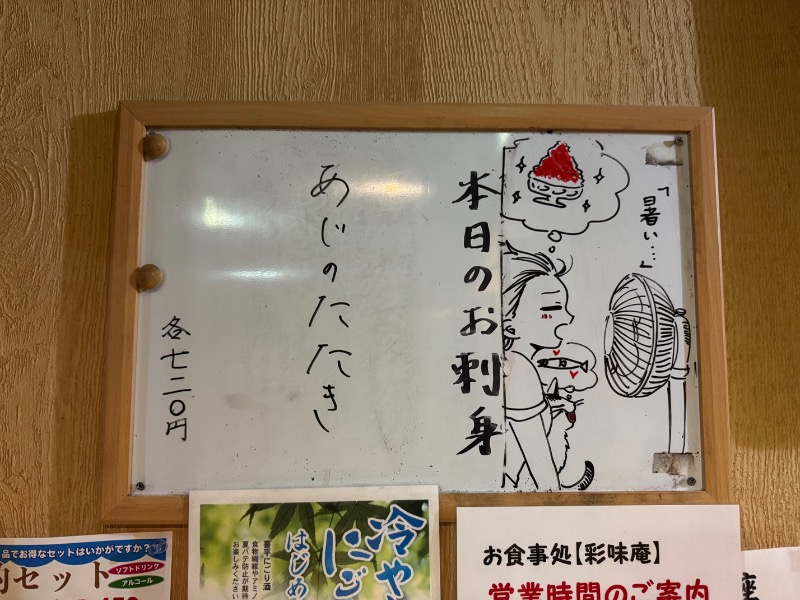 「暑い…」
本日のお刺身
あじのたたき
各七二〇円
品でお得なセットはいかがですか?
セット
ソフトドリンク
アルコール
冷や
にご
はじめ
喜平にごり酒
食物繊維やアミノ
夏バテ防止が期待
お楽しみください
お食事処【彩味庵】
営業時間のご案内
座